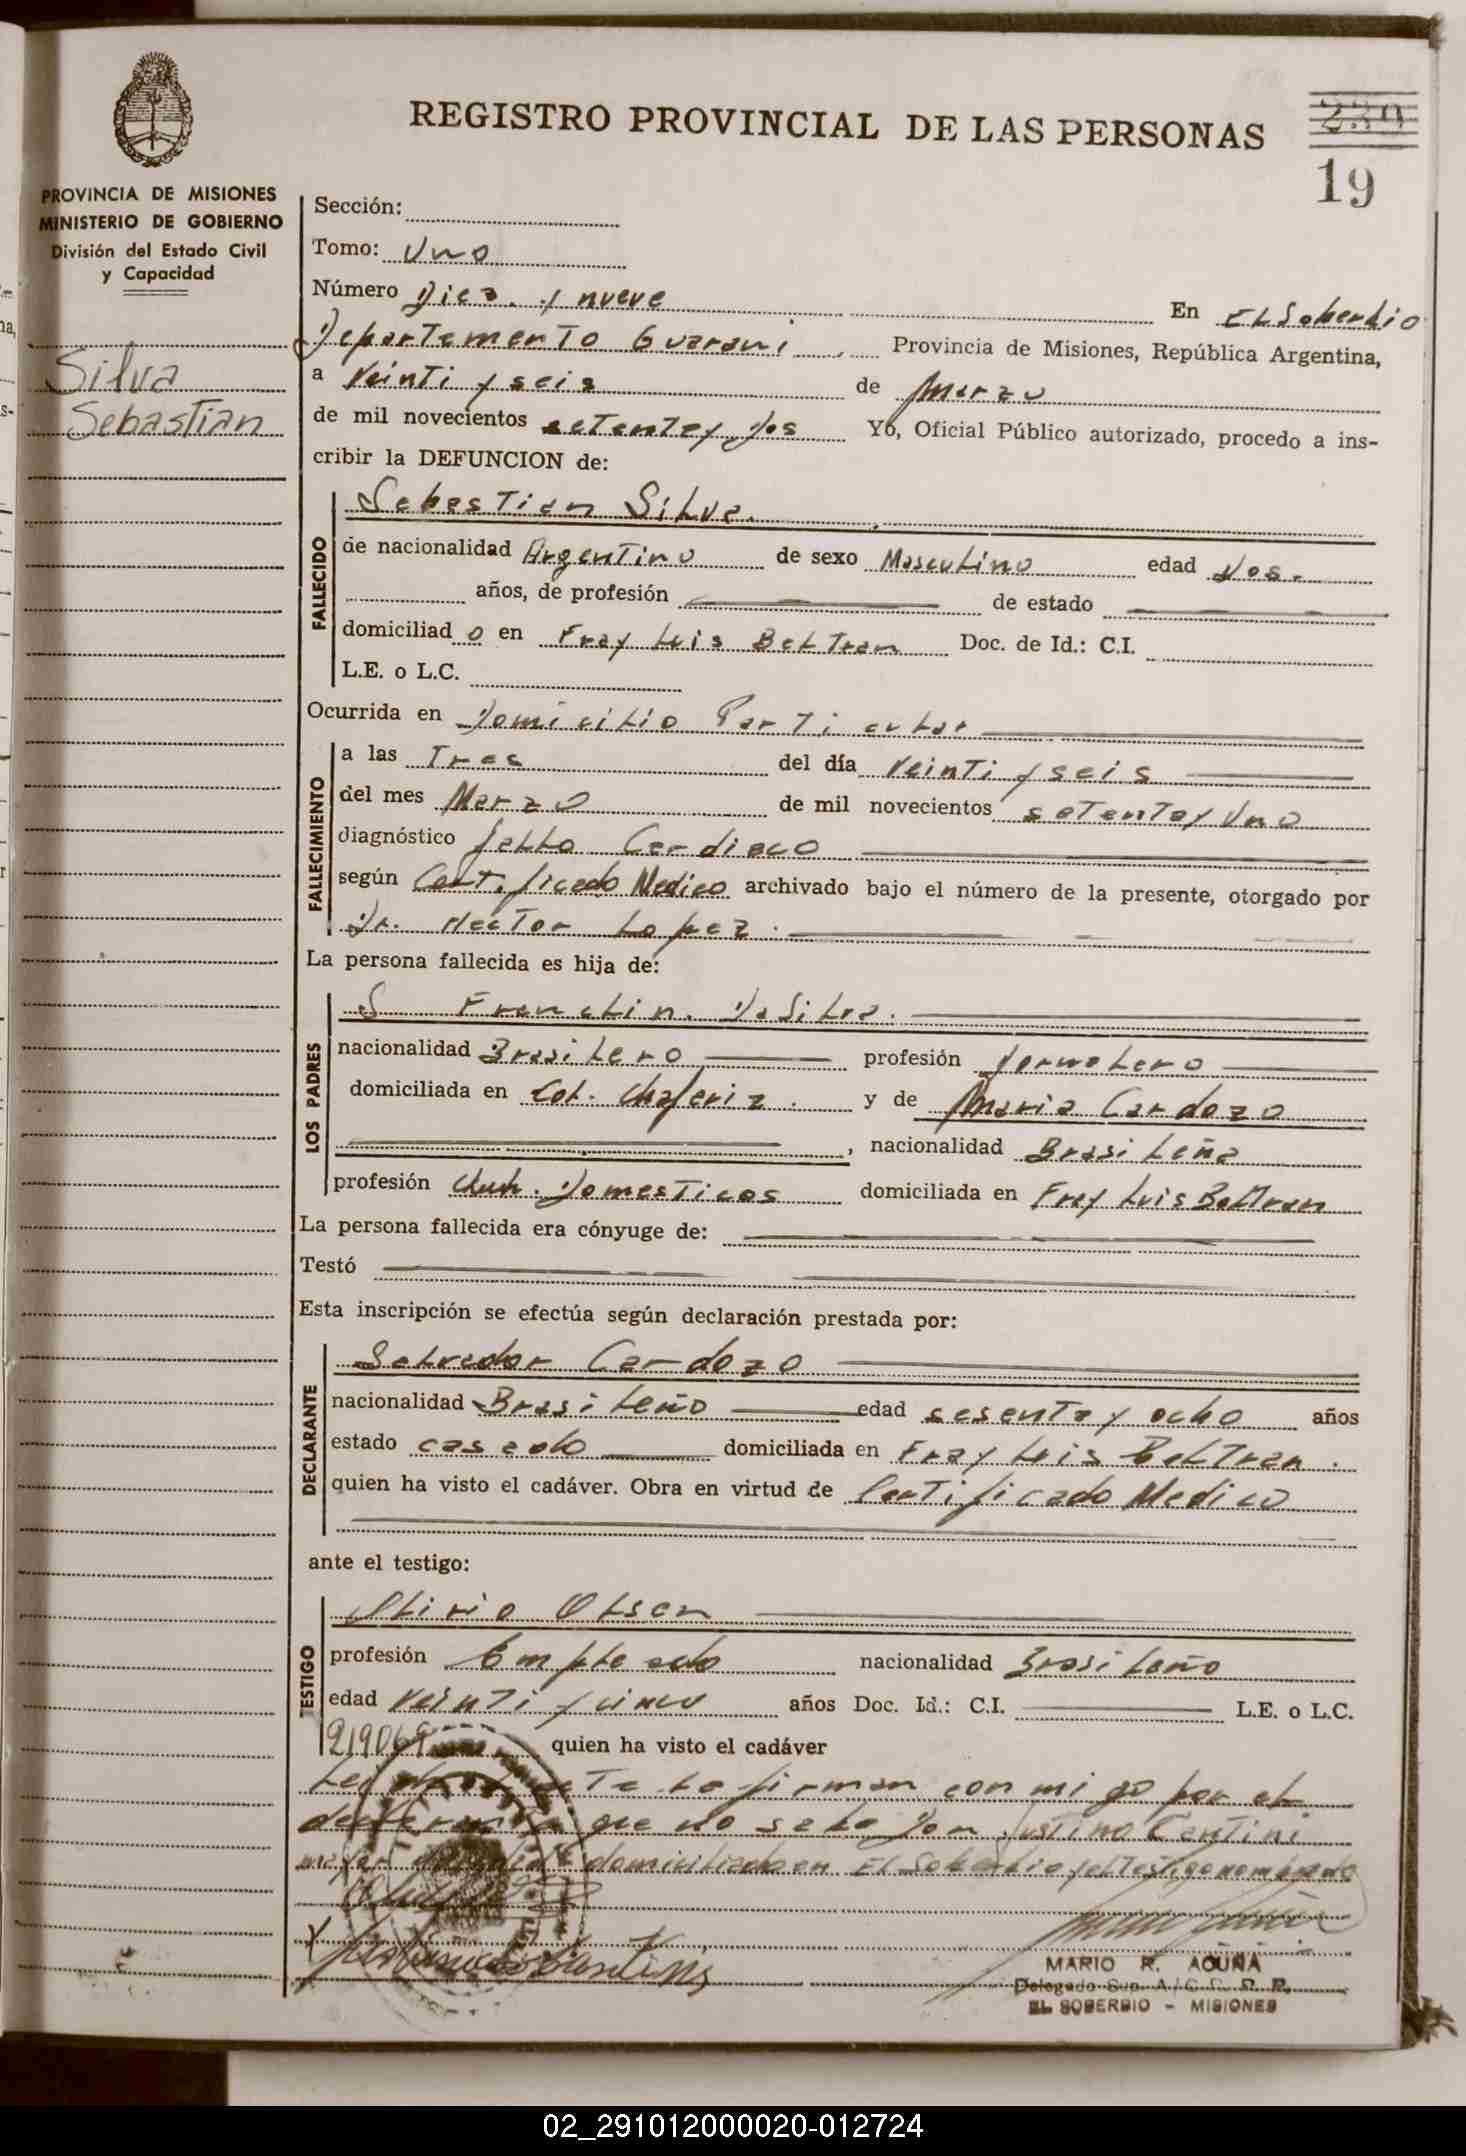 REGISTRO PROVINCIAL DE LAS PERSONAS
239
19
PROVINCIA DE MISIONES
MINISTERIO DE GOBIERNO
División del Estado Civil
y Capacidad
Silva
Sebastian
Sección:
Tomo: Uno
Número Diez y nueve En El Soberbio
Departamento Guarani Provincia de Misiones, República Argentina,
a Veinti y seis de Marzo
de mil novecientos setenta y dos Yo, Oficial Público autorizado, procedo a ins-
cribir la DEFUNCION de:
FALLECIDO
Sebastian Silva.
de nacionalidad Argentino de sexo Masculino edad Dos.
años, de profesión de estado
domiciliad o en Fray Luis Beltran Doc. de Id.: C.I.
L.E. o L.C.
Ocurrida en Domicilio Particular
FALLECIMIENTO
a las Tres del día Veinti y seis
del mes Marzo de mil novecientos setenta y Uno
diagnóstico fallo Cardiaco
según Certificado Medico archivado bajo el número de la presente, otorgado por
Dr. Hector Lopez.
La persona fallecida es hija de:
LOS PADRES
Franclin. Da Silva.
nacionalidad Brasilero profesión Jornalero
domiciliada en Col. Chafariz. y de Maria Cardozo
, nacionalidad Brasileña
profesión Domesticos domiciliada en Fray Luis Beltran
La persona fallecida era cónyuge de:
Testó
Esta inscripción se efectúa según declaración prestada por:
DECLARANTE
Salvador Cardozo
nacionalidad Brasileño edad sesenta y ocho años
estado casado domiciliada en Fray Luis Beltran.
quien ha visto el cadáver. Obra en virtud de Certificado Medico
ante el testigo:
TESTIGO
Olsen
profesión Empleado nacionalidad Brasileño
edad Veinti y cinco años Doc. Id.: C.I. L.E. o L.C.
219069 quien ha visto el cadáver
Leida el acta la firman con migo por el
declarante que no sabe Don Justino Centini
mayor domiciliado en El Soberbio y el testigo nombrado
MARIO R. ACUÑA
Delegado Sup. A/C C. R. P.
EL SOBERBIO - MISIONES
02_291012000020-012724